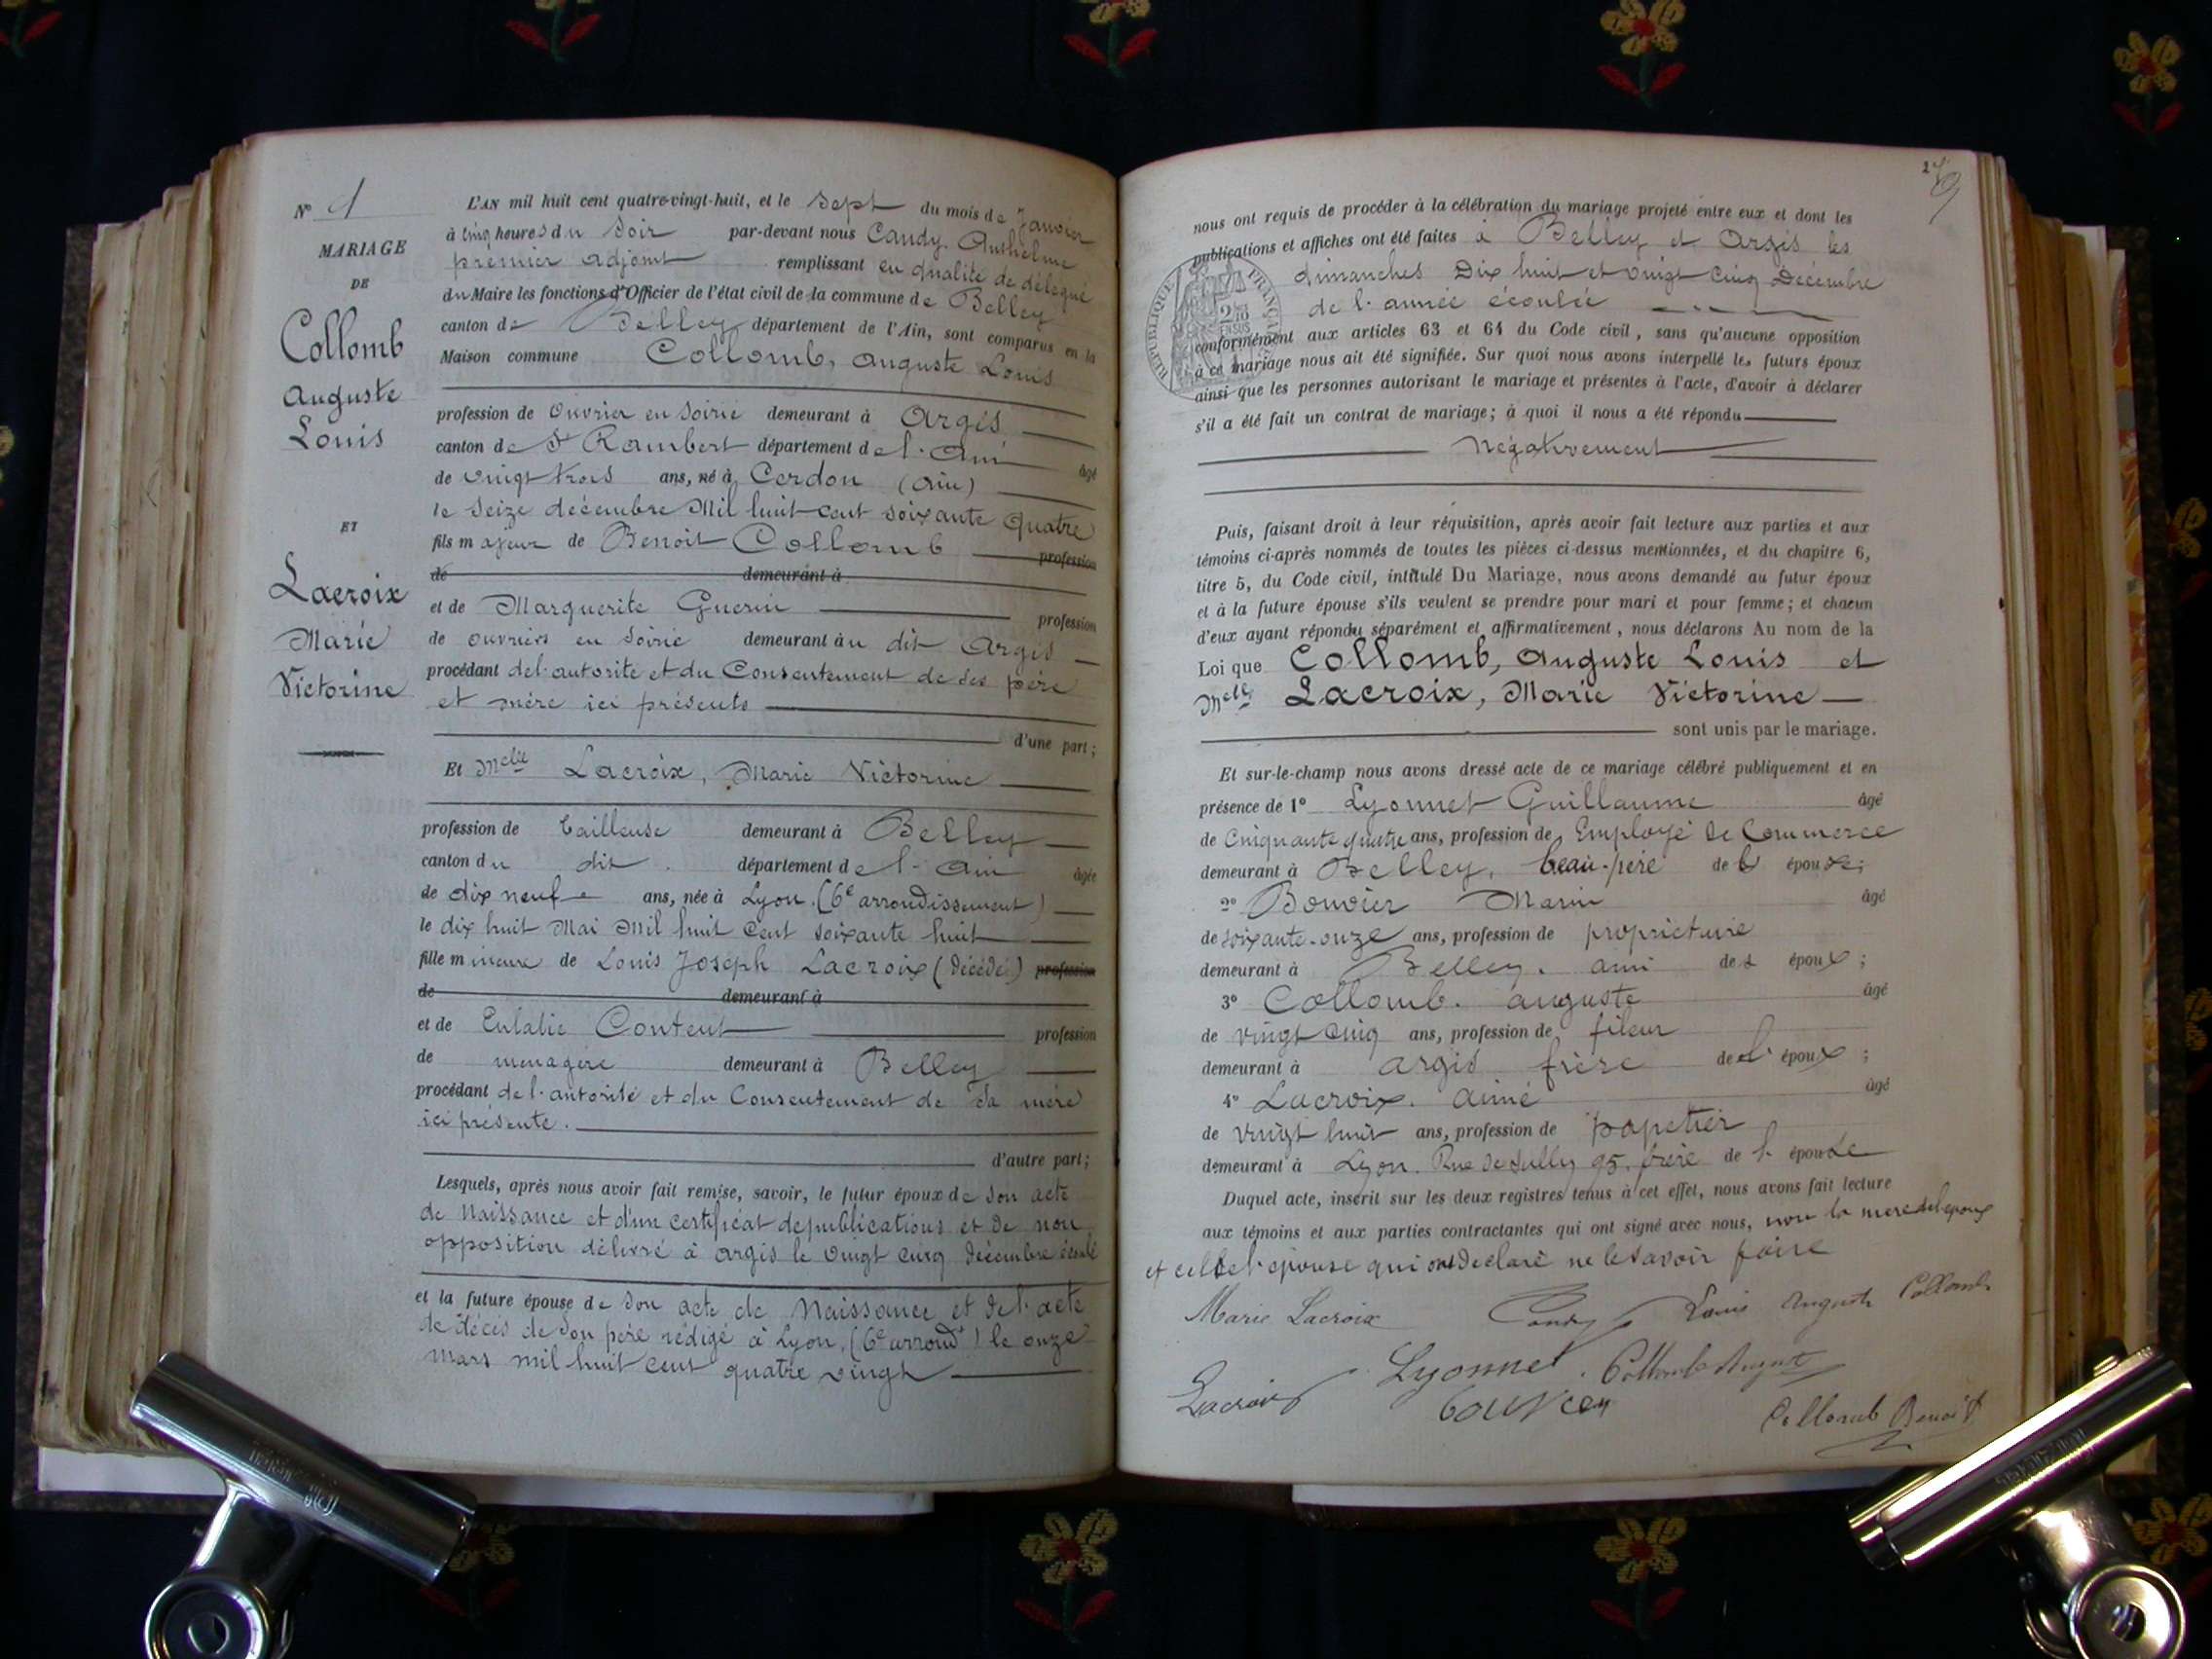 N° 1
MARIAGE
DE
Collomb
Auguste
Louis
ET
Lacroix
Marie
Victorine
L'AN mil huit cent quatre-vingt-huit, et le Sept du mois de Janvier
à cinq heures du Soir par-devant nous Candy Anthelme
premier adjoint remplissant en qualité de délégué
du Maire les fonctions d'Officier de l'état civil de la commune de Belley
canton de Belley, département de l'Ain, sont comparus en la
Maison commune Collomb, Auguste Louis
profession de Ouvrier en Soirie demeurant à Argis
canton de St Rambert département de l'Ain âgé
de vingt trois ans, né à Cerdon (Ain)
le Seize décembre Mil huit cent soixante quatre
fils majeur de Benoit Collomb profession
de demeurant à
et de Marguerite Guerin profession
de ouvriers en Soirie demeurant au dit Argis
procédant de l'autorité et du Consentement de ses père
et mère ici présents
d'une part;
Et Melle Lacroix, Marie Victorine
profession de tailleuse demeurant à Belley
canton du dit département de l'Ain âgée
de dix neuf ans, née à Lyon (6e arrondissement)
le dix huit Mai Mil huit Cent soixante huit
fille mineure de Louis Joseph Lacroix (décédé) profession
de demeurant à
et de Eulalie Content profession
de menagère demeurant à Belley
procédant de l'autorité et du Consentement de sa mère
ici présente.
d'autre part;
Lesquels, après nous avoir fait remise, savoir, le futur époux de Son acte
de Naissance et d'un certificat de publications et de non
opposition délivré à Argis le vingt cinq décembre écoulé
et la future épouse de Son acte de Naissance et de l'acte
de décès de Son père rédigé à Lyon, (6e arrondt) le onze
mars mil huit cent quatre vingt
nous ont requis de procéder à la célébration du mariage projeté entre eux et dont les
publications et affiches ont été faites à Belley et Argis les
dimanches Dix huit et vingt Cinq Décembre
de l'année écoulée
conformément aux articles 63 et 64 du Code civil, sans qu'aucune opposition
à ce mariage nous ait été signifiée. Sur quoi nous avons interpellé les futurs époux
ainsi que les personnes autorisant le mariage et présentes à l'acte, d'avoir à déclarer
s'il a été fait un contrat de mariage; à quoi il nous a été répondu
Négativement
RÉPUBLIQUE FRANÇAISE
2/10
EN SUS
Puis, faisant droit à leur réquisition, après avoir fait lecture aux parties et aux
témoins ci-après nommés de toutes les pièces ci-dessus mentionnées, et du chapitre 6,
titre 5, du Code civil, intitulé Du Mariage, nous avons demandé au futur époux
et à la future épouse s'ils veulent se prendre pour mari et pour femme; et chacun
d'eux ayant répondu séparément et affirmativement, nous déclarons Au nom de la
Loi que Collomb, Auguste Louis et
Melle Lacroix, Marie Victorine
sont unis par le mariage.
Et sur-le-champ nous avons dressé acte de ce mariage célébré publiquement et en
présence de 1° Lyonnet Guillaume âgé
de Cinquante quatre ans, profession de Employé de Commerce
demeurant à Belley, beau-père de l' épouse;
2° Bouvier Marin âgé
de soixante-onze ans, profession de propriétaire
demeurant à Belley, ami des époux;
3° Collomb. Auguste âgé
de vingt cinq ans, profession de fileur
demeurant à Argis frère de l' époux;
4° Lacroix. Aimé âgé
de vingt huit ans, profession de papetier
demeurant à Lyon. Rue de Sully 95. frère de l' épouse
Duquel acte, inscrit sur les deux registres tenus à cet effet, nous avons fait lecture
aux témoins et aux parties contractantes qui ont signé avec nous, non la mère de l'époux
et celle de l'épouse qui ont déclaré ne le savoir faire
Marie Lacroix Candy Louis Auguste Collomb
Lacroix Lyonnet Collomb August
bouvier Collomb Benoit